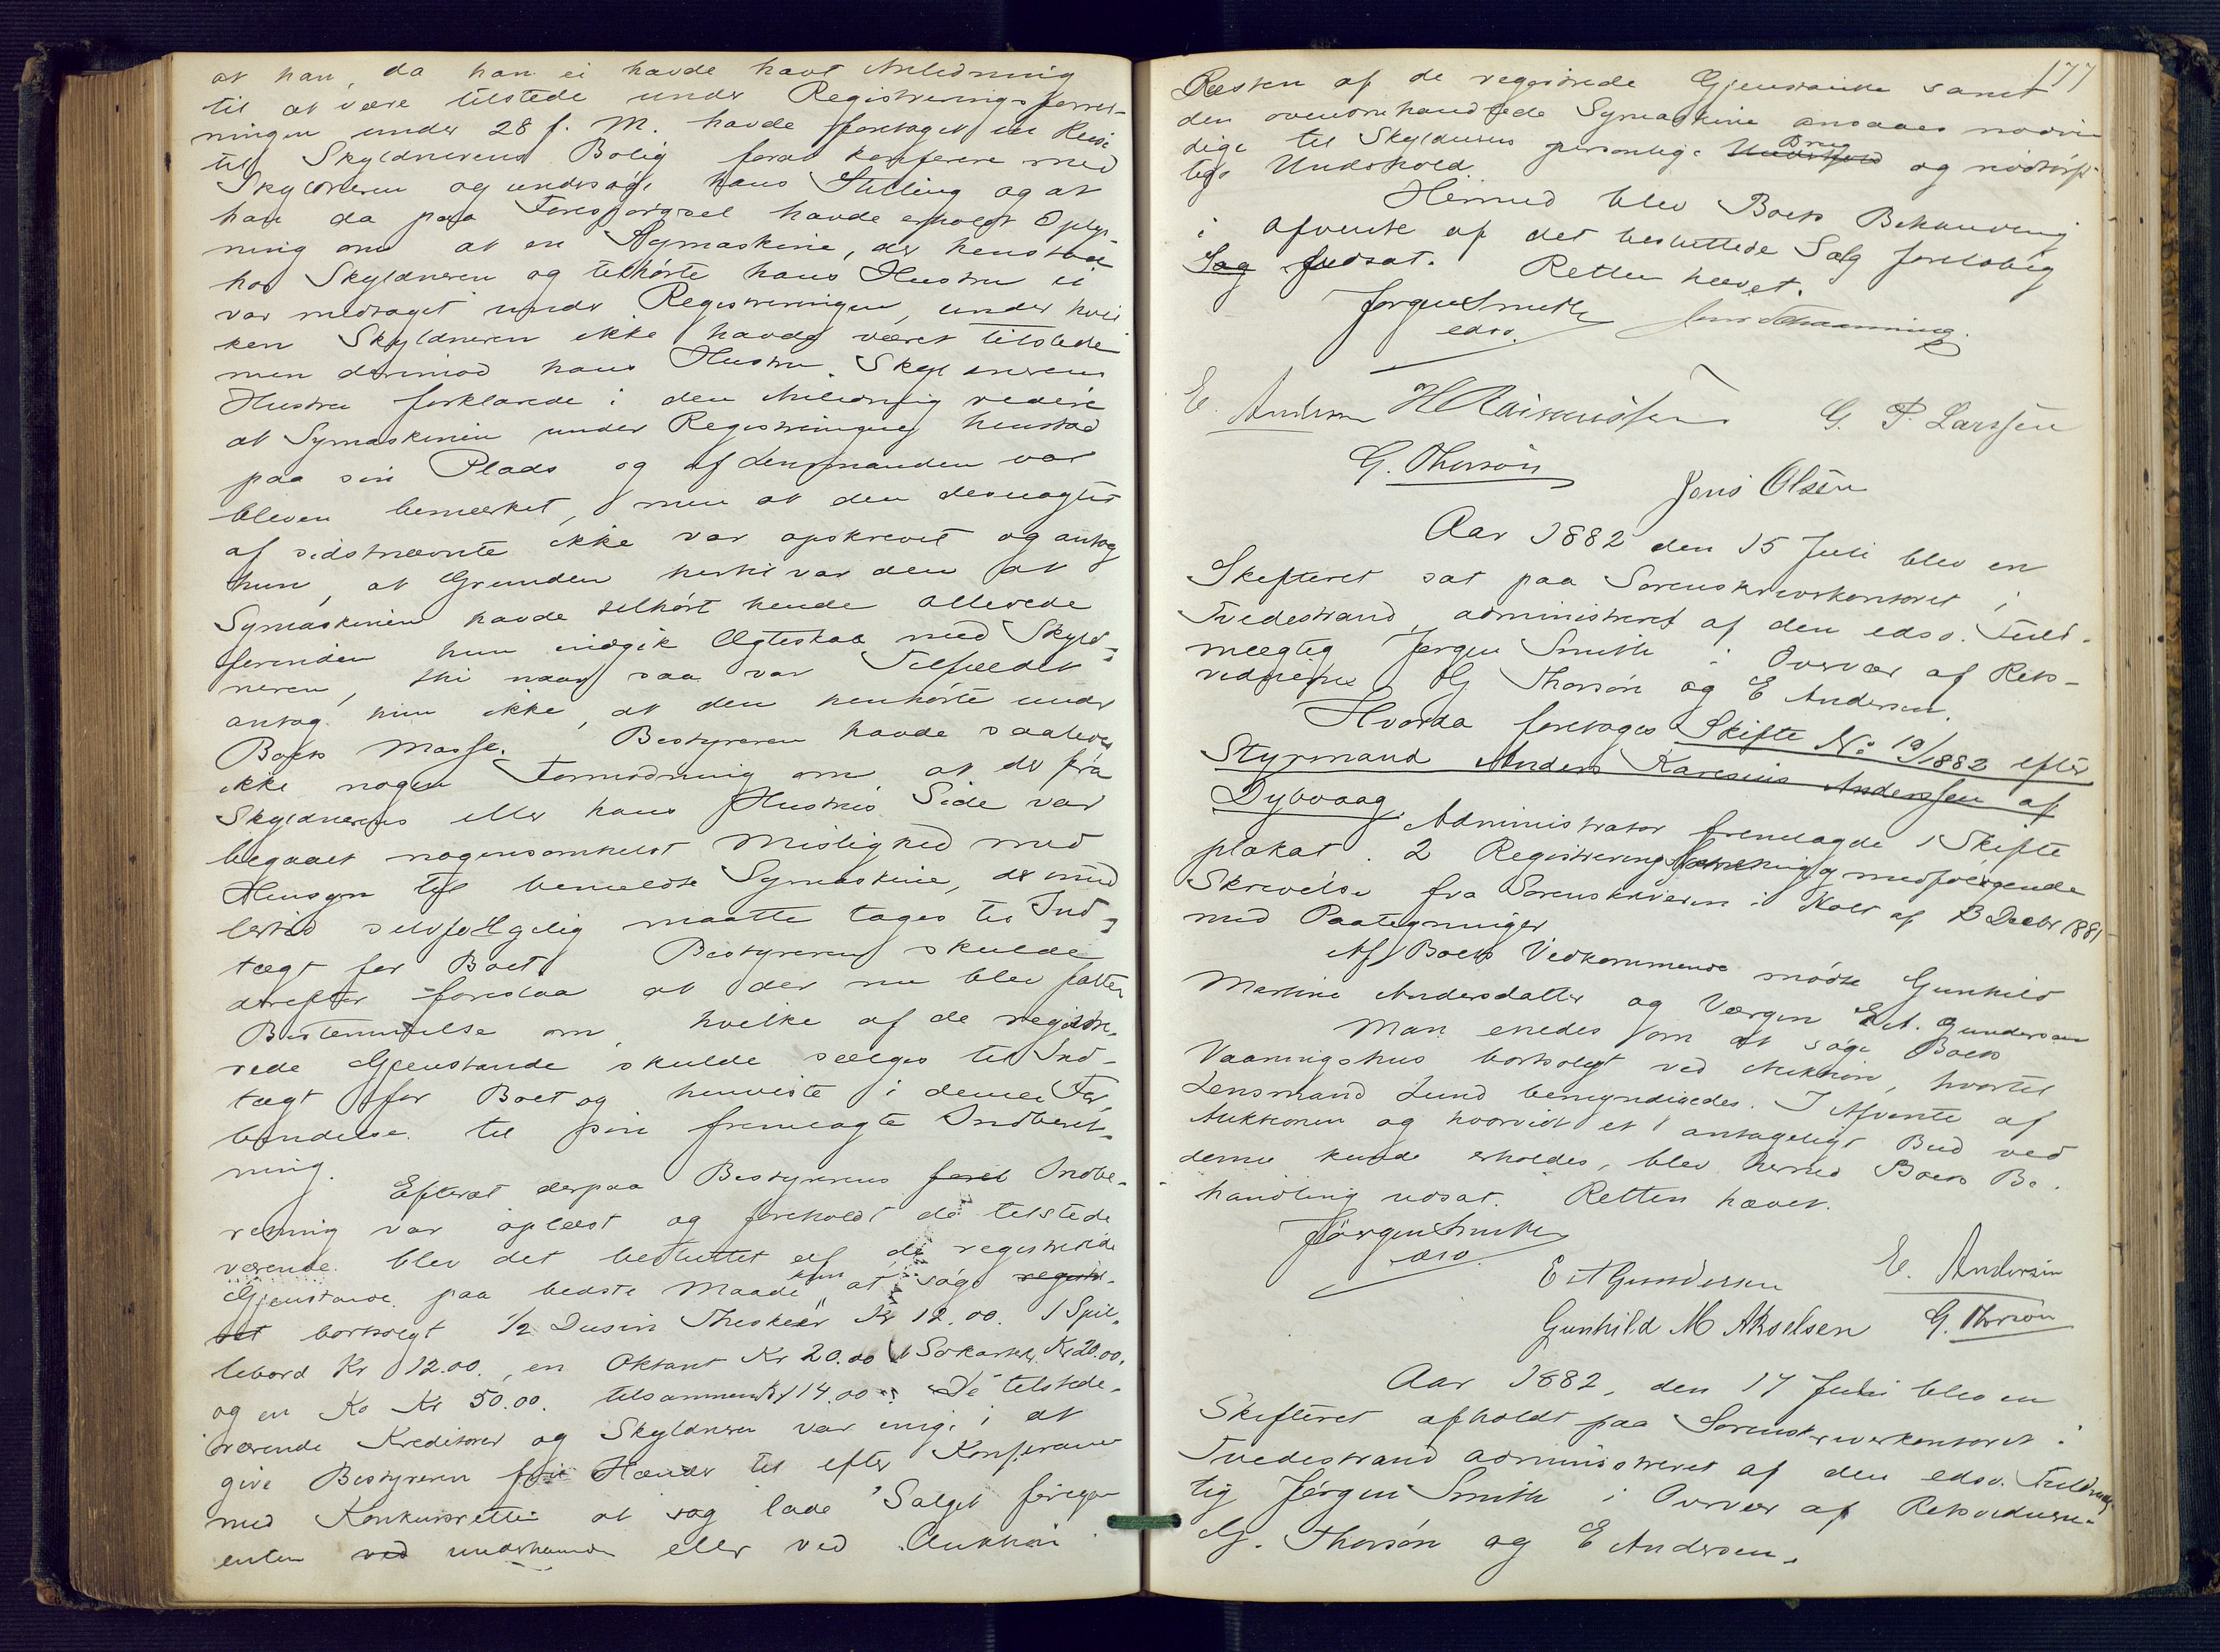 at han, da han ei havde havt Anledning
til at være tilstede under Registreringsforret-
ningen under 28 f. M. havde foretaget en Reise
til Skyldnerens Bolig forat konferere med
Skyldneren og undersøge hans Stilling og at
han da paa Forespørgsel havde erholdt Oplys-
ning om at en Symaskine, der henstod
hos Skyldneren og tilhørte hans Hustru ei
var medtaget under Registreringen, under hvil-
ken Skyldneren ikke havde været tilstede
men derimod hans Hustru. Skyldnerens
Hustru forklarede i den Anledning videre
at Symaskinen under Registreringen henstod
paa sin Plads og af Lensmanden var
bleven bemærket, men at den desuagtet
af sidstnævnte ikke var opskrevet og antog
hun, at Grunden hertil var den at
Symaskinen havde tilhørt hende allerede
forinden hun indgik Ægteskab med Skyld-
neren, thi naar saa var Tilfældet
antog hun ikke, at den henhørte under
Boets Masse. Bestyreren havde saaledes
ikke nogen Formodning om at der fra
Skyldnerens eller hans Hustrus Side var
begaaet nogensomhelst Mislighed med
Hensyn til bemeldte Symaskine, der imid
lertid selvfølgelig maatte tages til Ind-
tægt for Boet. Bestyreren skulde
derefter foreslaa at der nu blev fattet
Bestemmelse om hvilke af de registre-
rede Gjenstande skulde sælges til Ind-
tægt for Boet og henviste i denne For-
bindelse til sin fremlagte Indberet-
ning.
Efterat derpaa Bestyrerens foret Indbe-
retning var oplæst og foreholdt de tilstede
værende blev det besluttet af de registrerede
Gjenstande paa bedste Maade kun at søge registr-
ret bortsolgt 1/2 Dusin Theskeer Kr 12.00. 1 Spil-
lebord Kr 12.00., en Oktant Kr 20.00 1 Søkarter Kr 20.00.
og en Ko Kr 50.00. tilsammen Kr 114.00. De tilstede-
værende Kreditorer og Skyldneren var enige i at
give Bestyreren frie Hænder til efter Konferance
med Konkursretten at søg lade Salget foregaa
enten ved underhaanden eller ved Auktion.
177
Resten af de registrerede Gjenstande samt
den ovenomhandlede Symaskine ansaaes nødven
dige til Skyldnerens personlige Underhold Brug og nødtørf-
tige Underhold.
Hermed blev Boets Behandling
i Afvente af det besluttede Salg foreløbig
Sag udsat. Retten hævet.
Jørgen Smith
edsv.
Jens Schaanning.
E. Andersen H Rasmussen G. P. Larssen
G. Thorsøn
Jens Olsen
Aar 1882 den 15 Juli blev en
Skifteret sat paa Sorenskriverkontoret i
Tvedestrand, administreret af den edsv. Fuld-
mægtig Jørgen Smith i Overvær af Rets-
vidnerne G Thorsøn og E Andersen.
Hvorda foretoges Skifte No 19/1882 efter
Styrmand Anders Karenius Anderssen af
Dybvaag. Administrator fremlagde 1 Skifte
plakat. 2 Registreringsforretning med følgende
Skrivelse fra Sorenskriveren i Holt af 13 Decbr 1881
med Paategninger
Af Boets Vedkommende mødte Gunhild
Martine Andersdatter og Værgen E. A. Gundersen
Man enedes om at søge Boets
Vaaningshus bortsolgt ved Auktion, hvortil
Lensmand Lund bemyndigedes. I Afvente af
Auktionen og hvorvidt et antageligt Bud ved
denne kunde erholdes, blev hermed Boets Be-
handling udsat. Retten hævet.
Jørgen Smith
edsv.
E A Gundersen E. Andersen
Gunhild M Akselsen G. Thorsøn
Aar 1882, den 17 Juli blev en
Skifteret afholdt paa Sorenskriverkontoret i
Tvedestrand administreret af den edsv. Fuldmæg-
tig Jørgen Smith i Overvær af Retsvidnerne
G. Thorsøn og E Andersen.